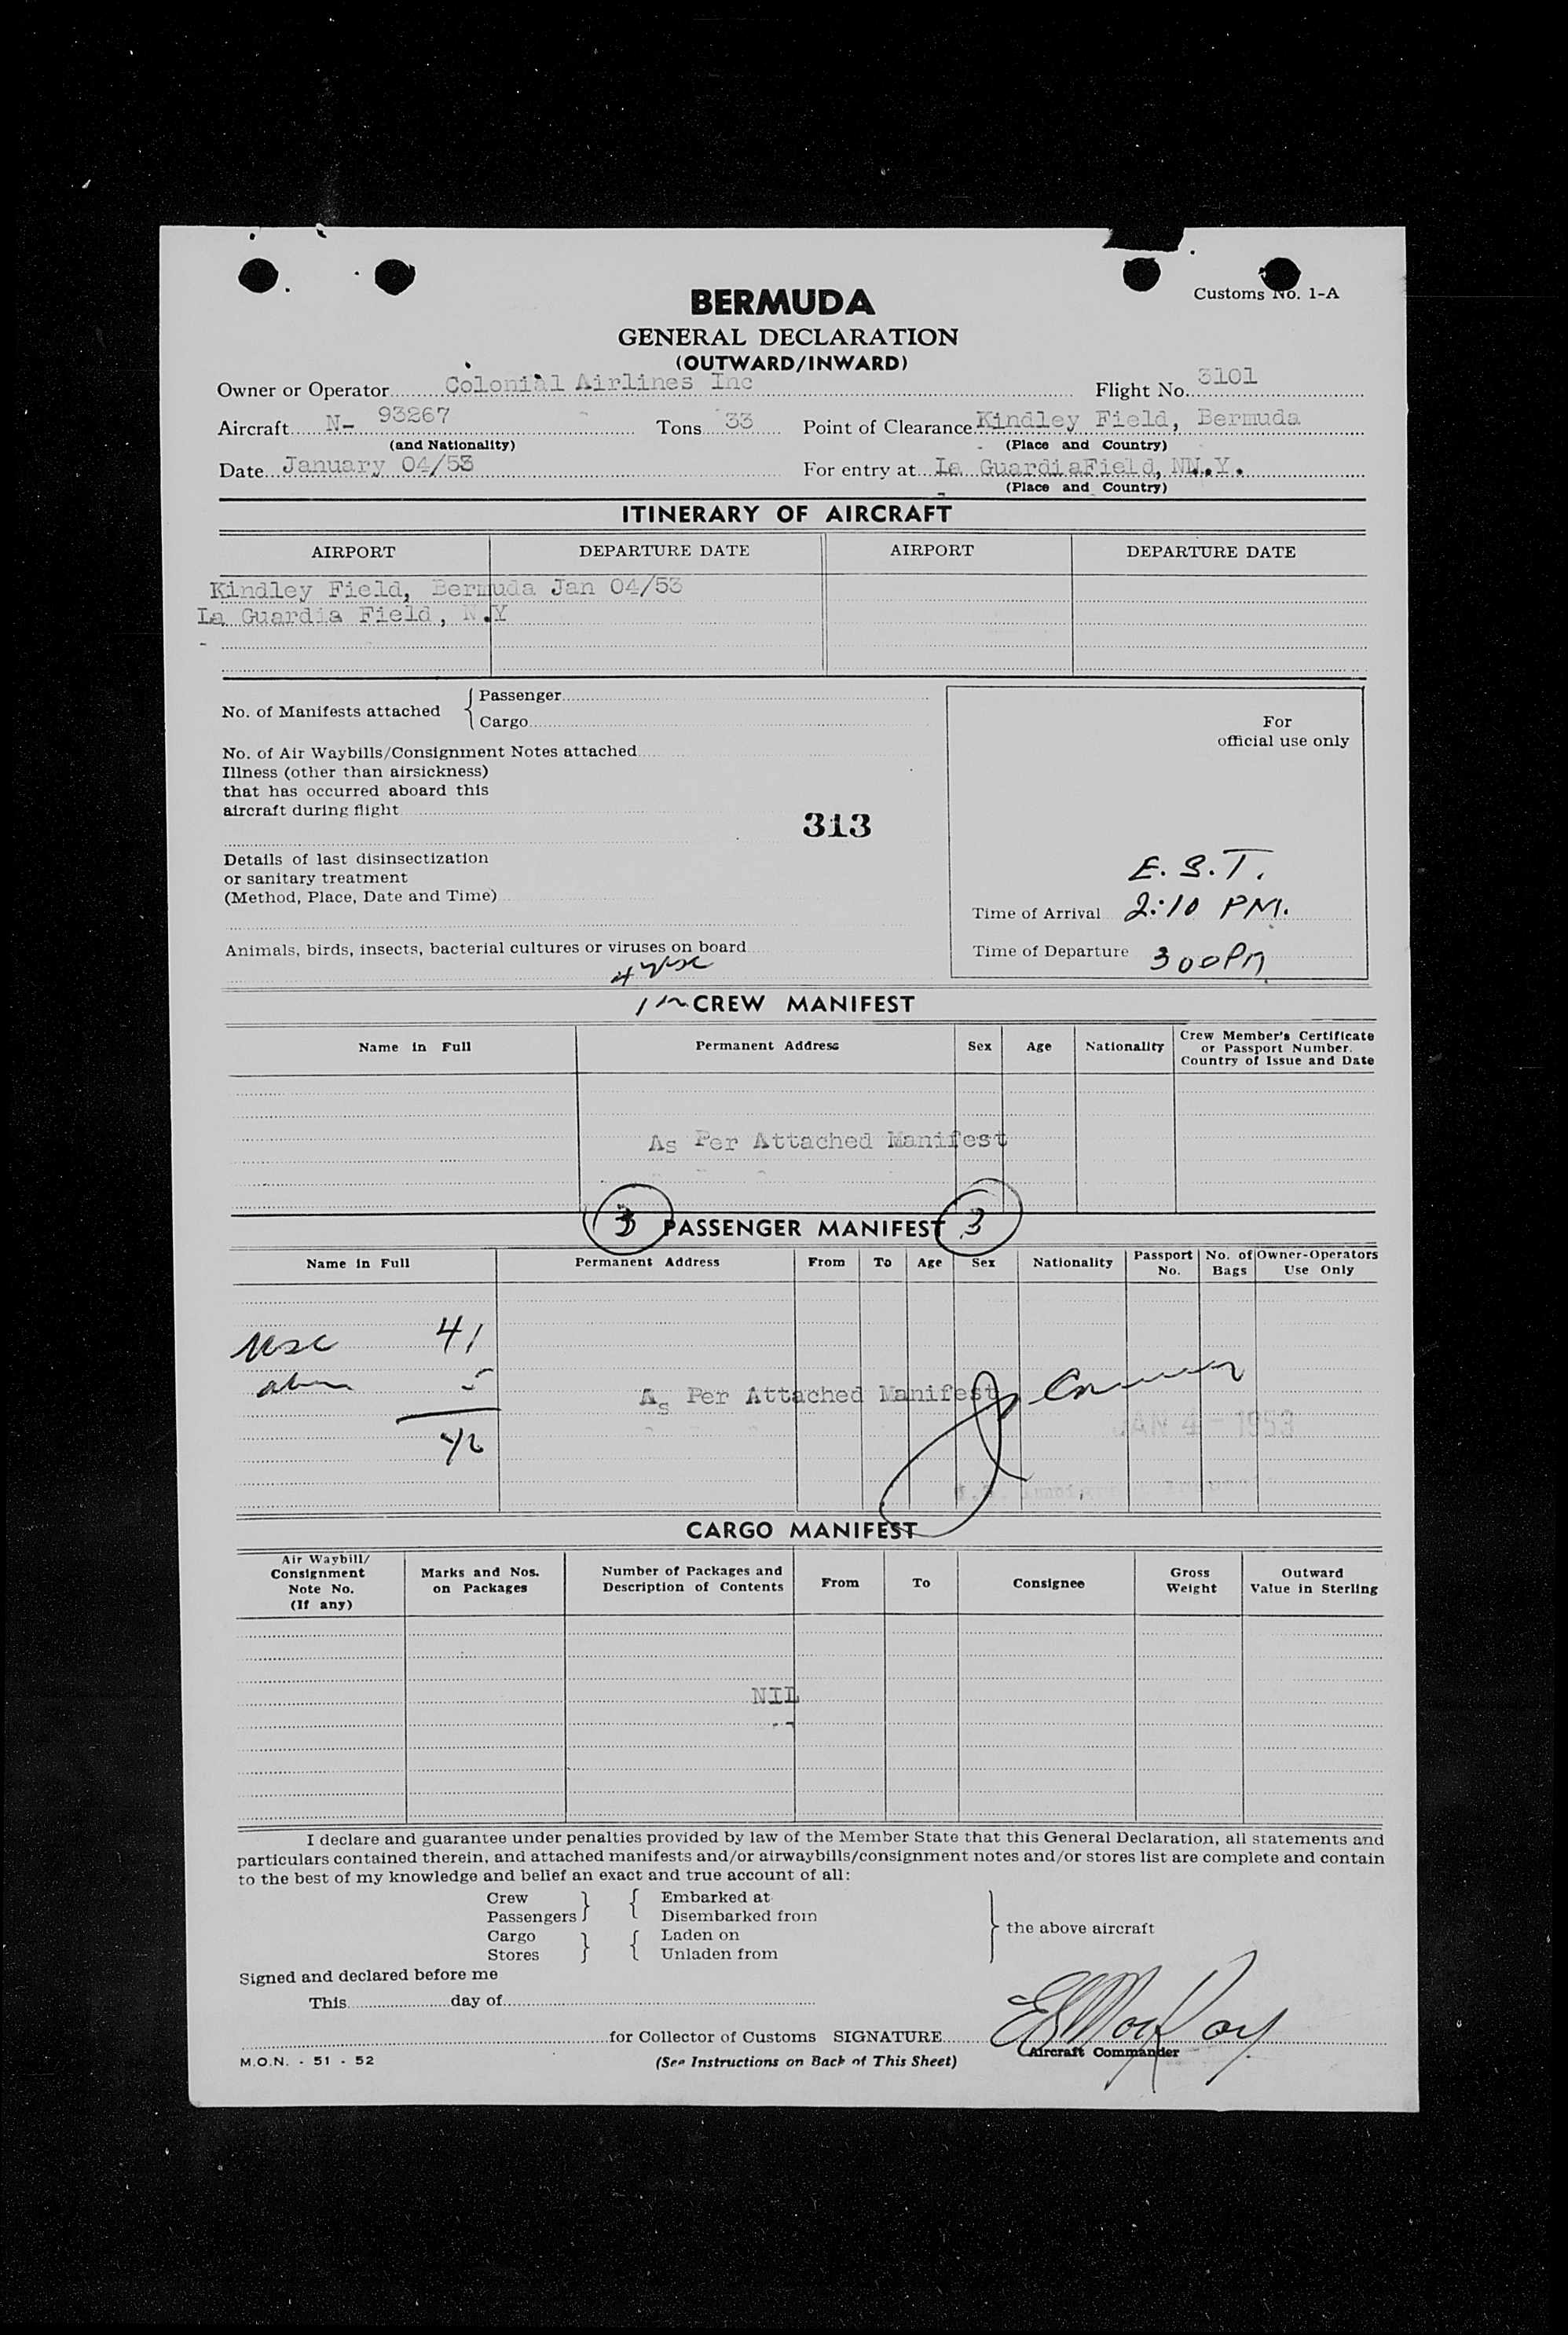 Customs No. 1-A
BERMUDA
GENERAL DECLARATION
(OUTWARD/INWARD)
Owner or Operator Colonial Airlines Inc Flight No. 3101
Aircraft N- 93267 Tons 33 Point of Clearance Kindley Field, Bermuda
(and Nationality) (Place and Country)
Date January 04/53 For entry at La GuardiaField, NN.Y.
(Place and Country)
ITINERARY OF AIRCRAFT
AIRPORT DEPARTURE DATE AIRPORT DEPARTURE DATE
Kindley Field, Bermuda Jan 04/53
La Guardia Field, N.Y
No. of Manifests attached { Passenger
Cargo
For
official use only
No. of Air Waybills/Consignment Notes attached
Illness (other than airsickness)
that has occurred aboard this
aircraft during flight
313
Details of last disinsectization
or sanitary treatment
(Method, Place, Date and Time)
E.S.T.
Time of Arrival 2:10 PM.
Animals, birds, insects, bacterial cultures or viruses on board
Time of Departure 300PM
4 usc
CREW MANIFEST
Name in Full Permanent Address Sex Age Nationality Crew Member's Certificate
or Passport Number.
Country of Issue and Date
As Per Attached Manifest
3 PASSENGER MANIFEST 3
Name in Full Permanent Address From To Age Sex Nationality Passport No. No. of Bags Owner-Operators Use Only
usc 41
5
As Per Attached Manifest
JAN 4 - 1953
CARGO MANIFEST
Air Waybill/ Consignment Note No. (If any) Marks and Nos. on Packages Number of Packages and Description of Contents From To Consignee Gross Weight Outward Value in Sterling
NIL
I declare and guarantee under penalties provided by law of the Member State that this General Declaration, all statements and
particulars contained therein, and attached manifests and/or airwaybills/consignment notes and/or stores list are complete and contain
to the best of my knowledge and belief an exact and true account of all:
Crew } { Embarked at
Passengers Disembarked from
Cargo } { Laden on
Stores Unladen from
} the above aircraft
Signed and declared before me
This day of
for Collector of Customs SIGNATURE
Aircraft Commander
M.O.N. - 51 - 52 (See Instructions on Back of This Sheet)